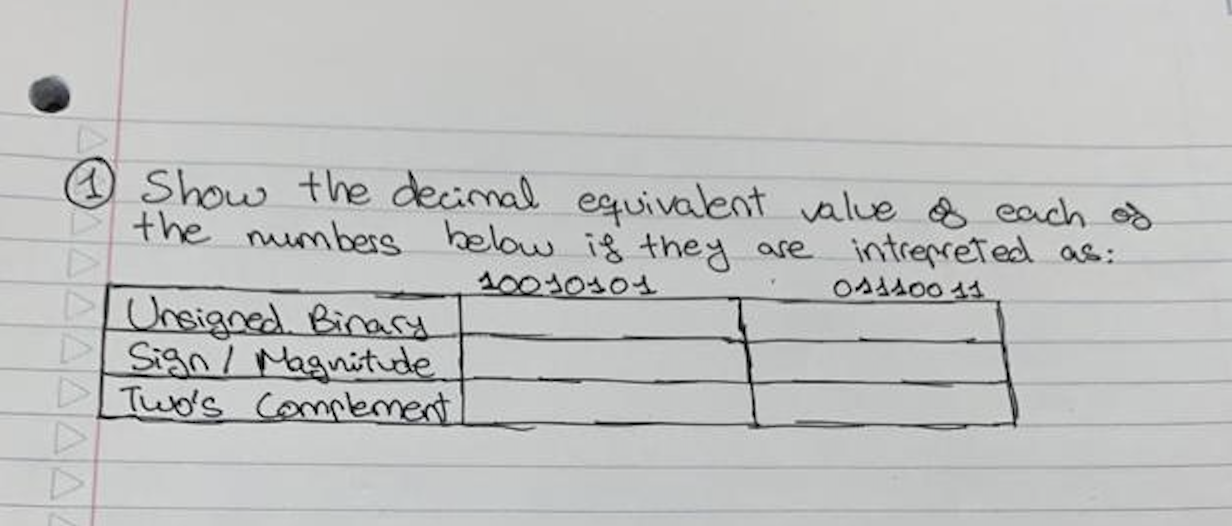 ① Show the decimal equivalent value of each of
the numbers below if they are intrepreted as:
10010101 01110011
Unsigned Binary
Sign / Magnitude
Two's Complement